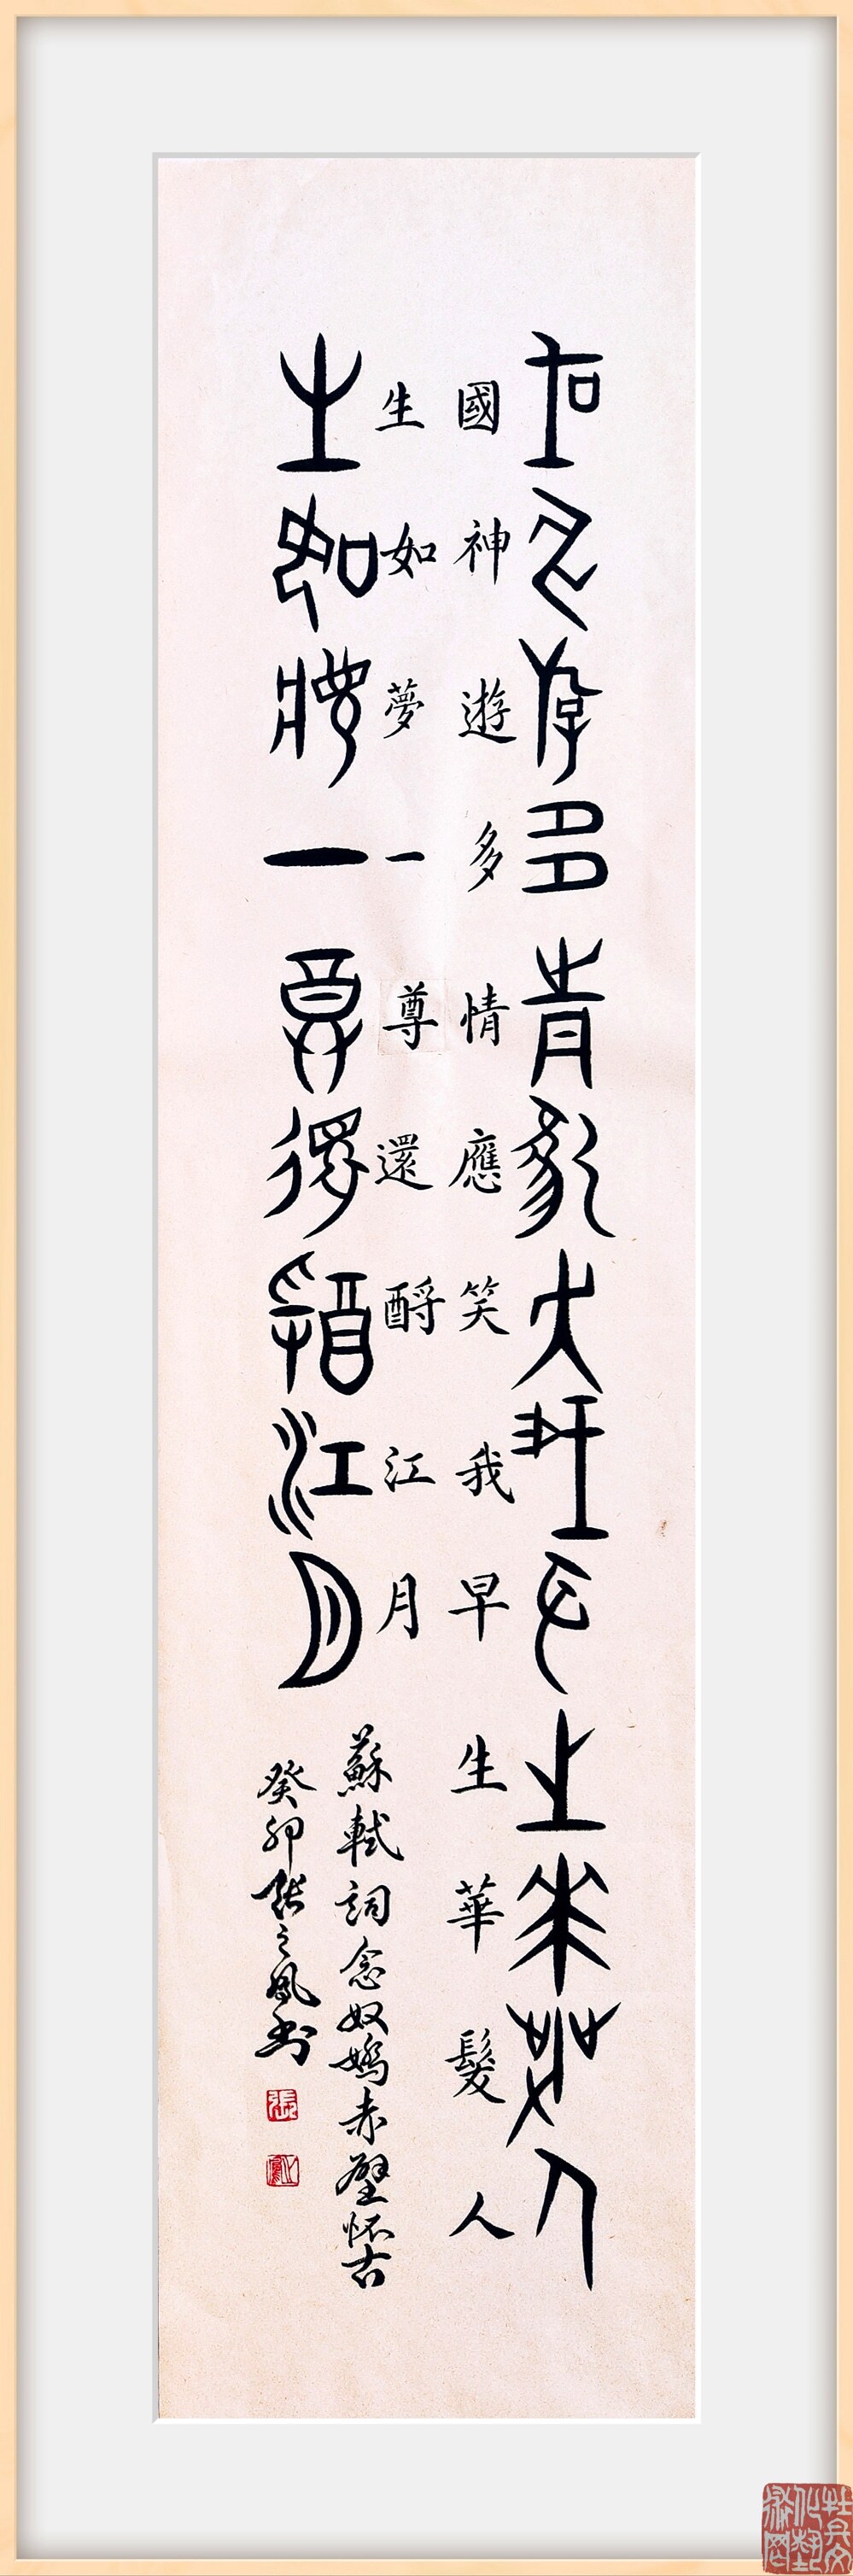 國神遊多情應笑我早生華髮人
國神遊多情應笑我早生華髮人
生如夢一尊還酹江月
生如夢一尊還酹江月
蘇軾詞念奴嬌赤壁怀古
癸卯張之鳳书
張
之鳳